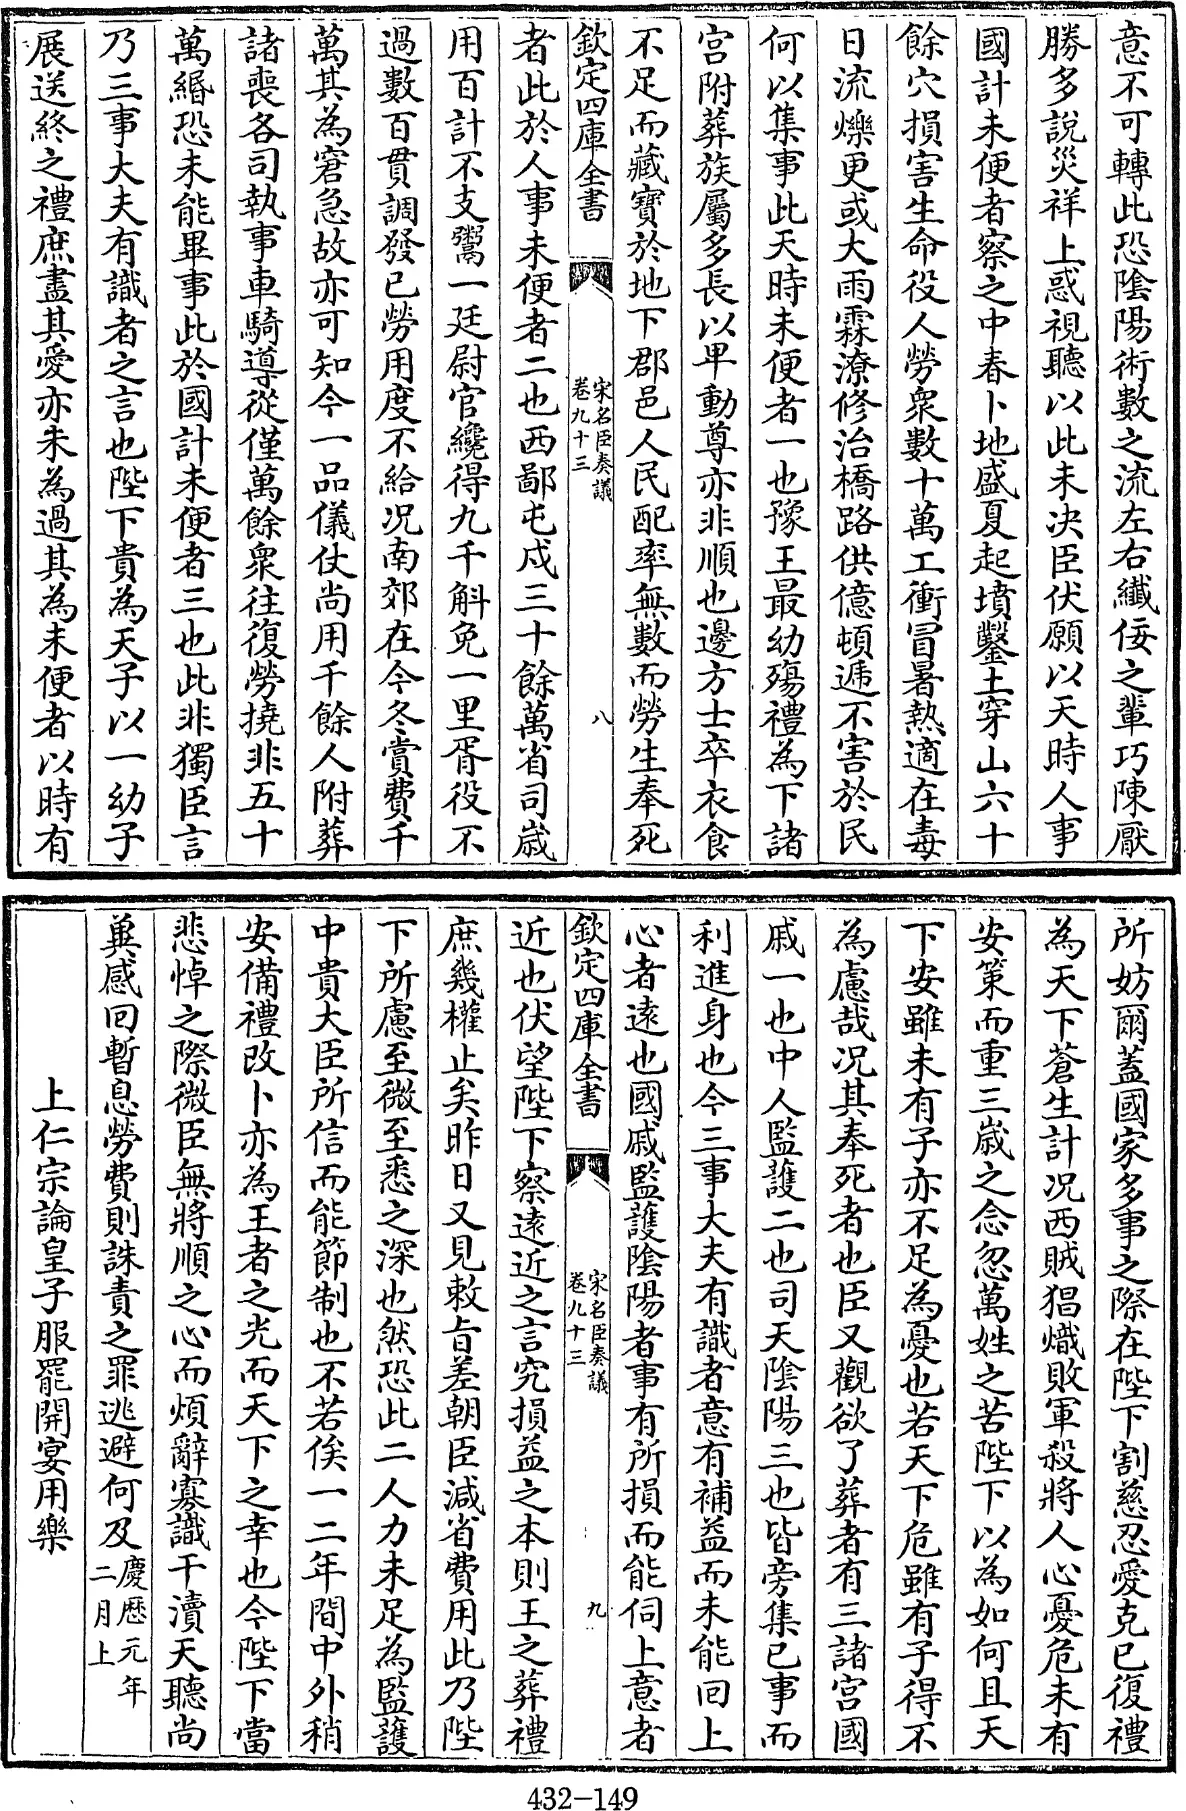 意不可轉此恐隂陽術數之流左右纎佞之輩巧陳厭
勝多說災祥上惑視聽以此未决臣伏願以天時人事
國計未便者察之中春卜地盛夏起墳鑿土穿山六十
餘穴損害生命役人勞衆數十萬工衝冒暑熱適在毒
日流爍更或大雨霖潦修治橋路供億頓遞不害於民
何以集事此天時未便者一也豫王最㓜殤禮為下諸
宫附葬族屬多長以卑動尊亦非順也邊方士卒衣食
不足而藏寶於地下郡邑人民配率無數而勞生奉死
欽定四庫全書
宋名臣奏議
卷九十三
八
者此於人事未便者二也西鄙屯戍三十餘萬省司嵗
用百計不支鬻一廷尉官纔得九千斛免一里胥役不
過數百貫調發已勞用度不給况南郊在今冬賞費千
萬其為窘急故亦可知今一品儀仗尚用千餘人附葬
諸喪各司執事車騎導從僅萬餘衆往復勞撓非五十
萬緡恐未能畢事此於國計未便者三也此非獨臣言
乃三事大夫有識者之言也陛下貴為天子以一幼子
展送終之禮庶盡其愛亦未為過其為未便者以時有
所妨爾蓋國家多事之際在陛下割慈忍愛克已復禮
為天下蒼生計况西賊猖熾敗軍殺將人心憂危未有
安策而重三嵗之念忽萬姓之苦陛下以為如何且天
下安雖未有子亦不足為憂也若天下危雖有子得不
為慮哉况其奉死者也臣又觀欲了葬者有三諸宫國
戚一也中人監䕶二也司天隂陽三也皆旁集已事而
利進身也今三事大夫有識者意有補益而未能回上
心者逺也國戚監䕶隂陽者事有所損而能伺上意者
欽定四庫全書
宋名臣奏議
卷九十三
九
近也伏望陛下察逺近之言究損益之本則王之葬禮
庶幾權止矣昨日又見敕旨差朝臣減省費用此乃陛
下所慮至微至悉之深也然恐此二人力未足為監䕶
中貴大臣所信而能節制也不若俟一二年間中外稍
安備禮改卜亦為王者之光而天下之幸也今陛下當
悲悼之際微臣無將順之心而煩辭寡識干瀆天聽尚
兾感回暫息勞費則誅責之罪逃避何及慶厯元年
二月上
上仁宗論皇子服罷開宴用樂
432-149